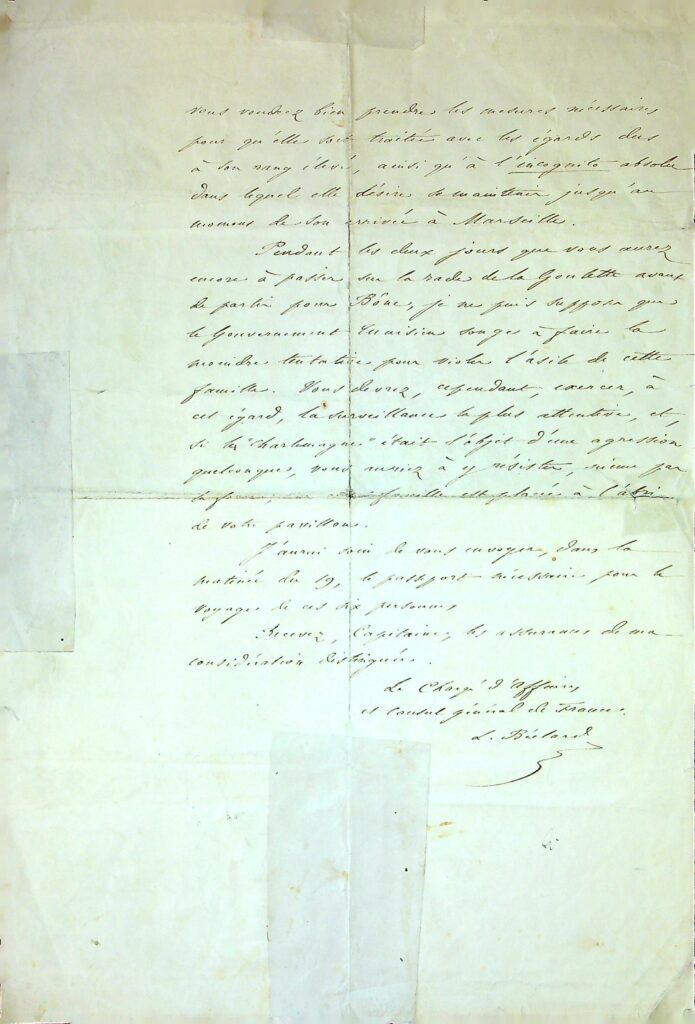 vous voudrez bien prendre les mesures nécessaires
pour qu'elle soit traitée avec les égards dus
à son rang élevé, ainsi qu'à l'incognito absolu
dans lequel elle désire se maintenir jusqu'au
moment de son arrivée à Marseille.
Pendant les deux jours que vous aurez
encore à passer sur la rade de la Goulette avant
de partir pour Bône, je ne puis supposer que
le Gouvernement Tunisien songe à faire la
moindre tentative pour violer l'asile de cette
famille. Vous devrez, cependant, exercer, à
cet égard, la surveillance la plus attentive, et,
si le "Charlemagne" était l'objet d'une agression
quelconque, vous auriez à y résister, même par
la force, cette famille est placée à l'abri
de votre pavillon.
J'aurai soin de vous envoyer, dans la
matinée du 19, le passeport nécessaire pour le
voyage de ces six personnes.
Recevez, Capitaine, les assurances de ma
considération distinguée.
Le Chargé d'Affaires
et Consul général de France.
L. Béclard